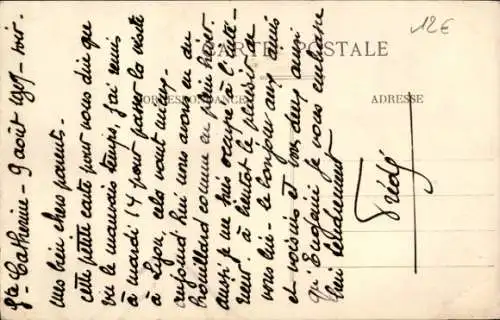 12€
CARTE POSTALE
CORRESPONDANCE
ADRESSE
Ste Catherine - 9 août 1909 - soir.
Mes bien chers parents.
cette petite carte pour vous dire que
vu le mauvais temps, j'ai remis
à mardi 14 pour passer la visite
à Lyon, cela vaut mieux.
aujourd'hui nous avons eu du
brouillard comme en plein hiver.
aussi je me suis occupé à l'inté-
rieur. à bientôt le plaisir de
vous lire - le bonjour aux amis
et voisins et vous deux ainsi
qu' je vous embrasse
bien tendrement